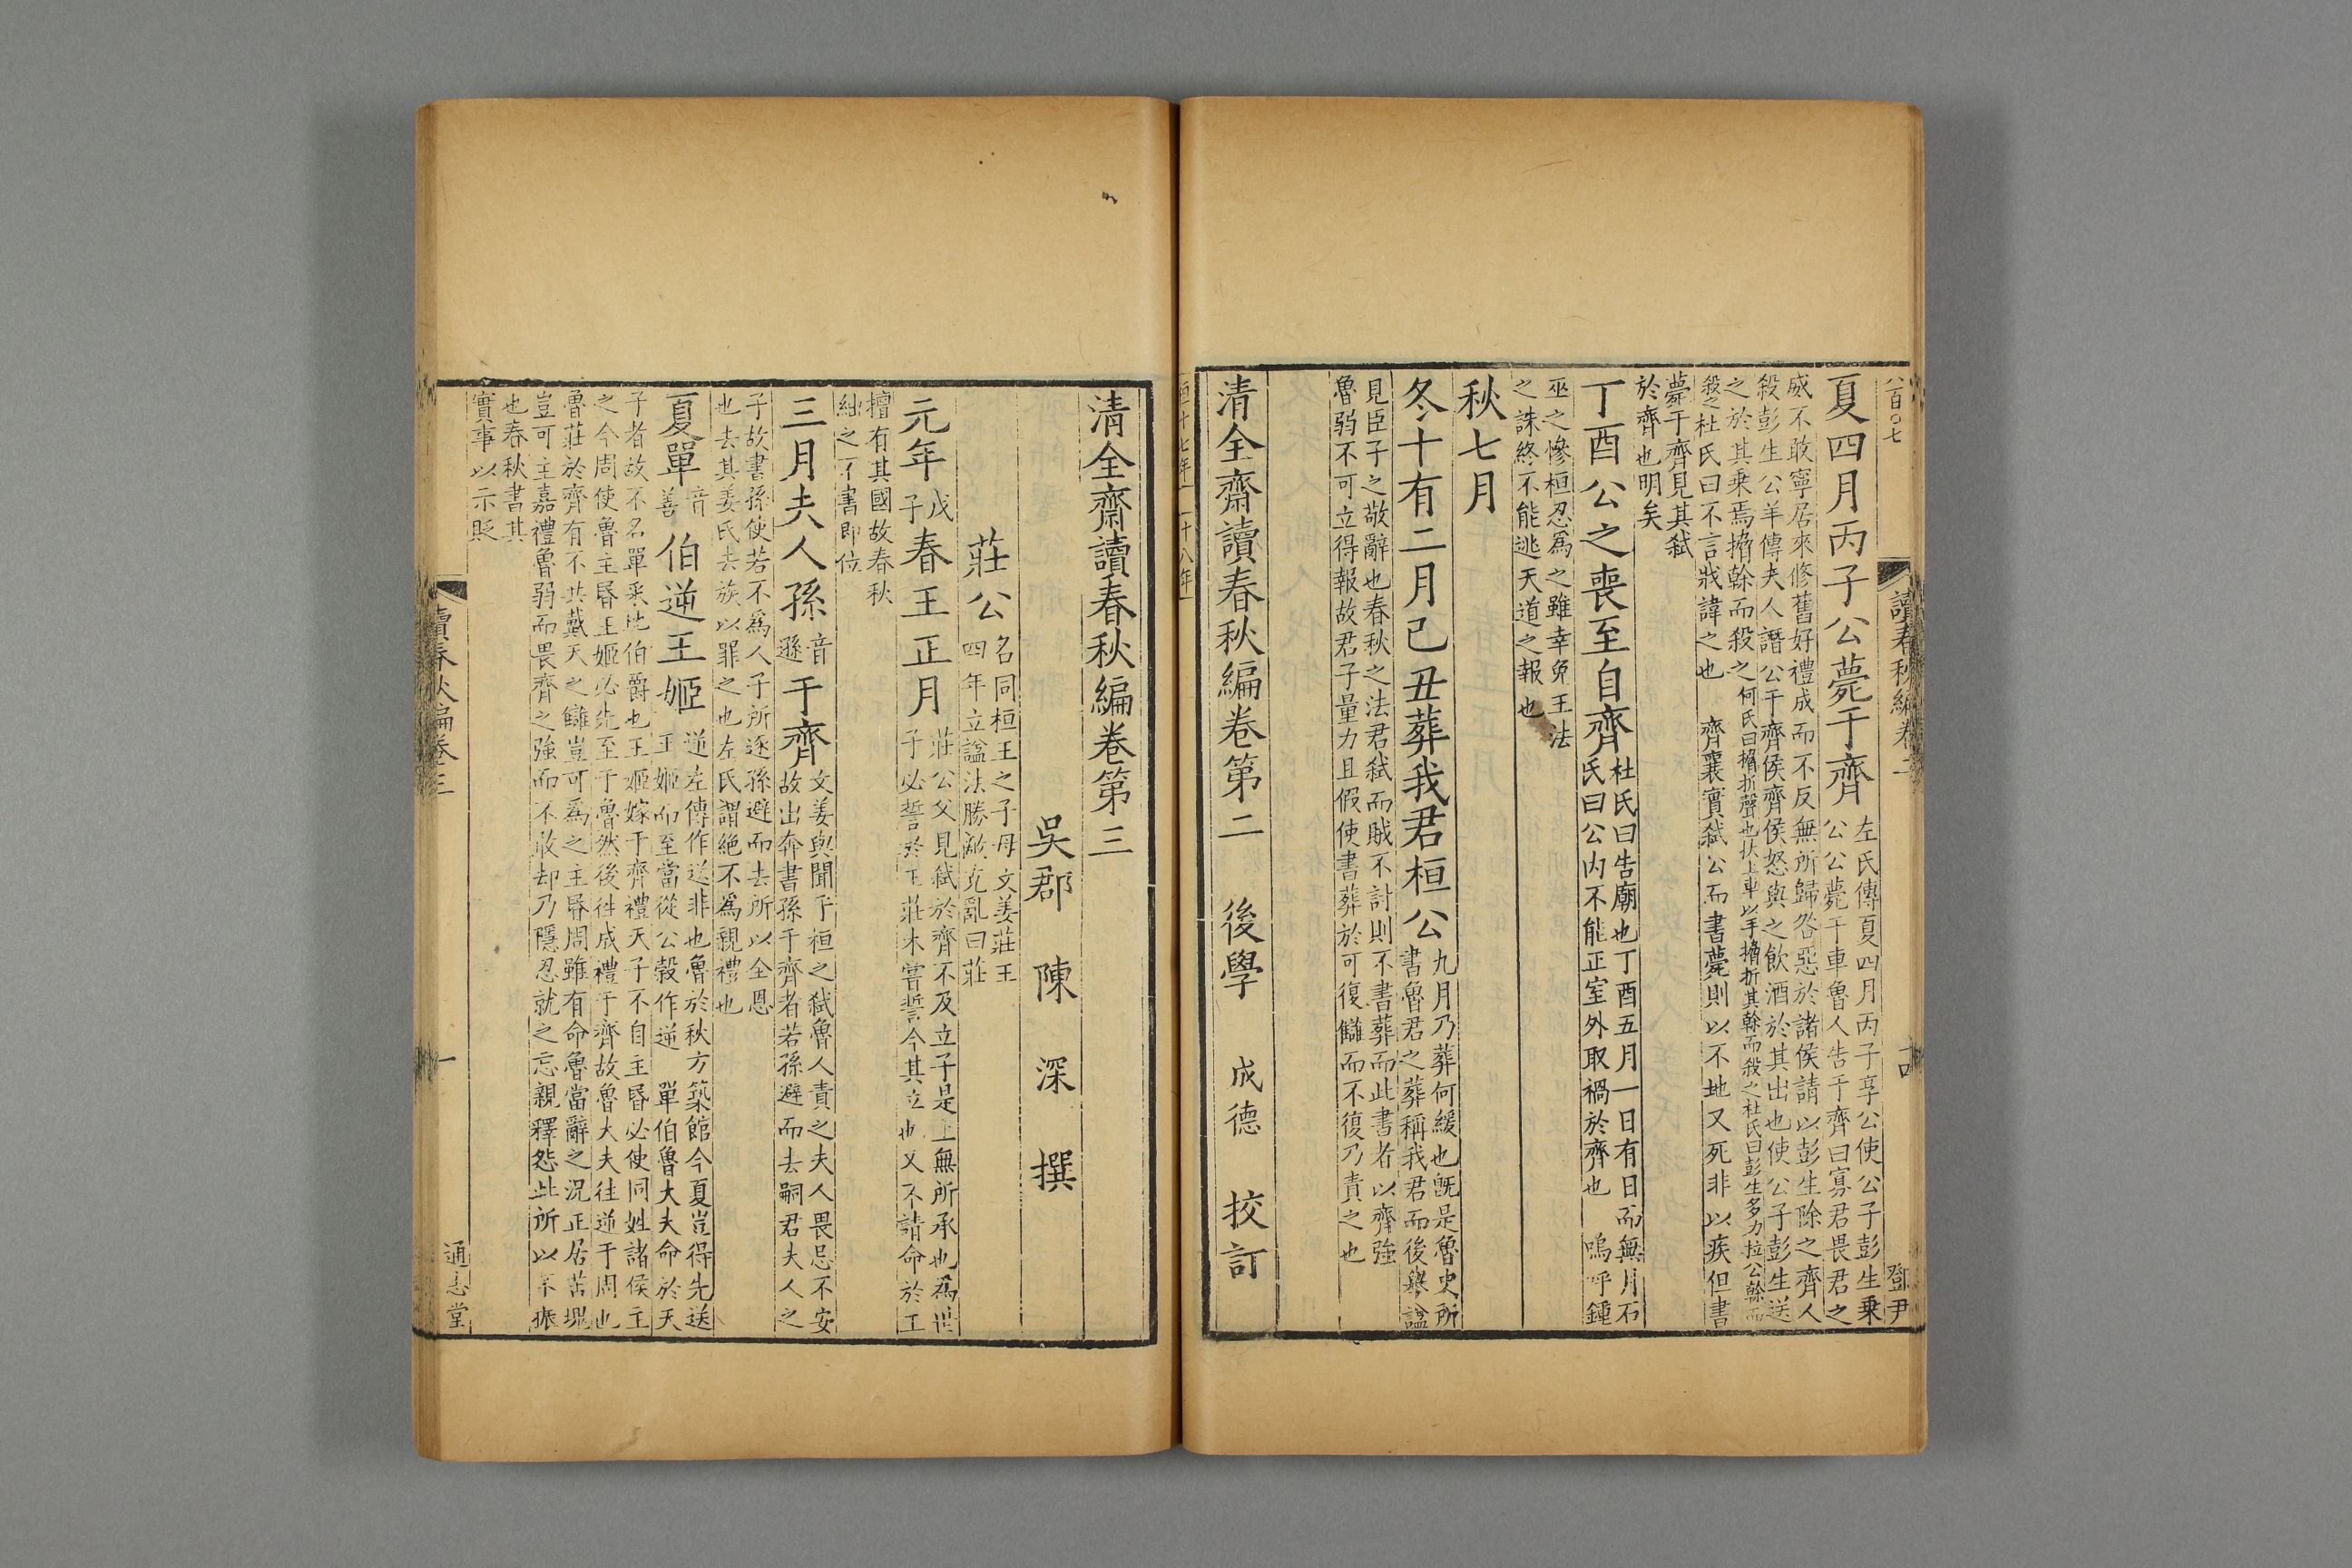 八百〇七
讀春秋編卷二
十四
鄧尹
夏四月丙子公薨于齊
左氏傳夏四月丙子享公使公子彭生乗
公公薨于車魯人告于齊曰寡君畏君之
威不敢寧居來修舊好禮成而不反無所歸咎惡於諸侯請以彭生除之齊人
殺彭生公羊傳夫人譖公于齊侯齊侯怒與之飲酒於其出也使公子彭生送
之於其乗焉搚幹而殺之
何氏曰搚折聲也扶上車以手搚折其幹而
殺之杜氏曰彭生多力拉公幹而
殺之
杜氏曰不言戕諱之也
齊襄實弑公而書薨則以不地又死非以疾但書
薨于齊見其弑
於齊也明矣
丁酉公之喪至自齊
杜氏曰告廟也丁酉五月一日有日而無月石
氏曰公内不能正室外取禍於齊也
嗚呼鍾
巫之慘桓忍爲之雖幸免王法
之誅終不能逃天道之報也
秋七月
冬十有二月己丑葬我君桓公
九月乃葬何緩也旣是魯史所
書魯君之葬稱我君而後舉謚
見臣子之敬辭也春秋之法君弑而賊不討則不書葬而此書者以齊強
魯弱不可立得報故君子量力且假使書葬於可復讎而不復乃責之也
清全齋讀春秋編卷第二
後學
成德
挍訂
桓十七年
十八年
清全齋讀春秋編卷第三
吳郡
陳
深
撰
莊公
名同桓王之子母文姜莊王
四年立謚法勝敵克亂曰莊
元年
戊
子
春王正月
莊公父見弑於齊不及立子是上無所承也爲世
子必誓於王莊木嘗誓今其立也又不請命於王
擅有其國故春秋
絀之不書即位
三月夫人孫
音
遜
于齊
文姜與聞乎桓之弑魯人責之夫人畏忌不安
故出奔書孫于齊者若孫避而去嗣君夫人之
子故書孫使若不爲人子所逐孫避而去所以全恩
也去其姜氏去族以罪之也左氏謂絶不爲親禮也
夏單
音
善
伯逆王姬
逆左傳作送非也魯於秋方築館今夏豈得先送
王姬而至當從公榖作逆
單伯魯大夫命於天
子者故不名單采地伯爵也王姬嫁于齊禮天子不自主昬必使同姓諸侯主
之今周使魯主昬王姬必先至于魯然後往成禮于齊故魯大夫往逆于周也
魯莊於齊有不共戴天之讎豈可爲之主昬周雖有命魯當辭之況正居苫堁
豈可主嘉禮魯弱而畏齊之強而不敢却乃隱忍就之忘親釋怨此所以不振
也春秋書其
實事以示貶
讀春秋編卷三
一
通志堂